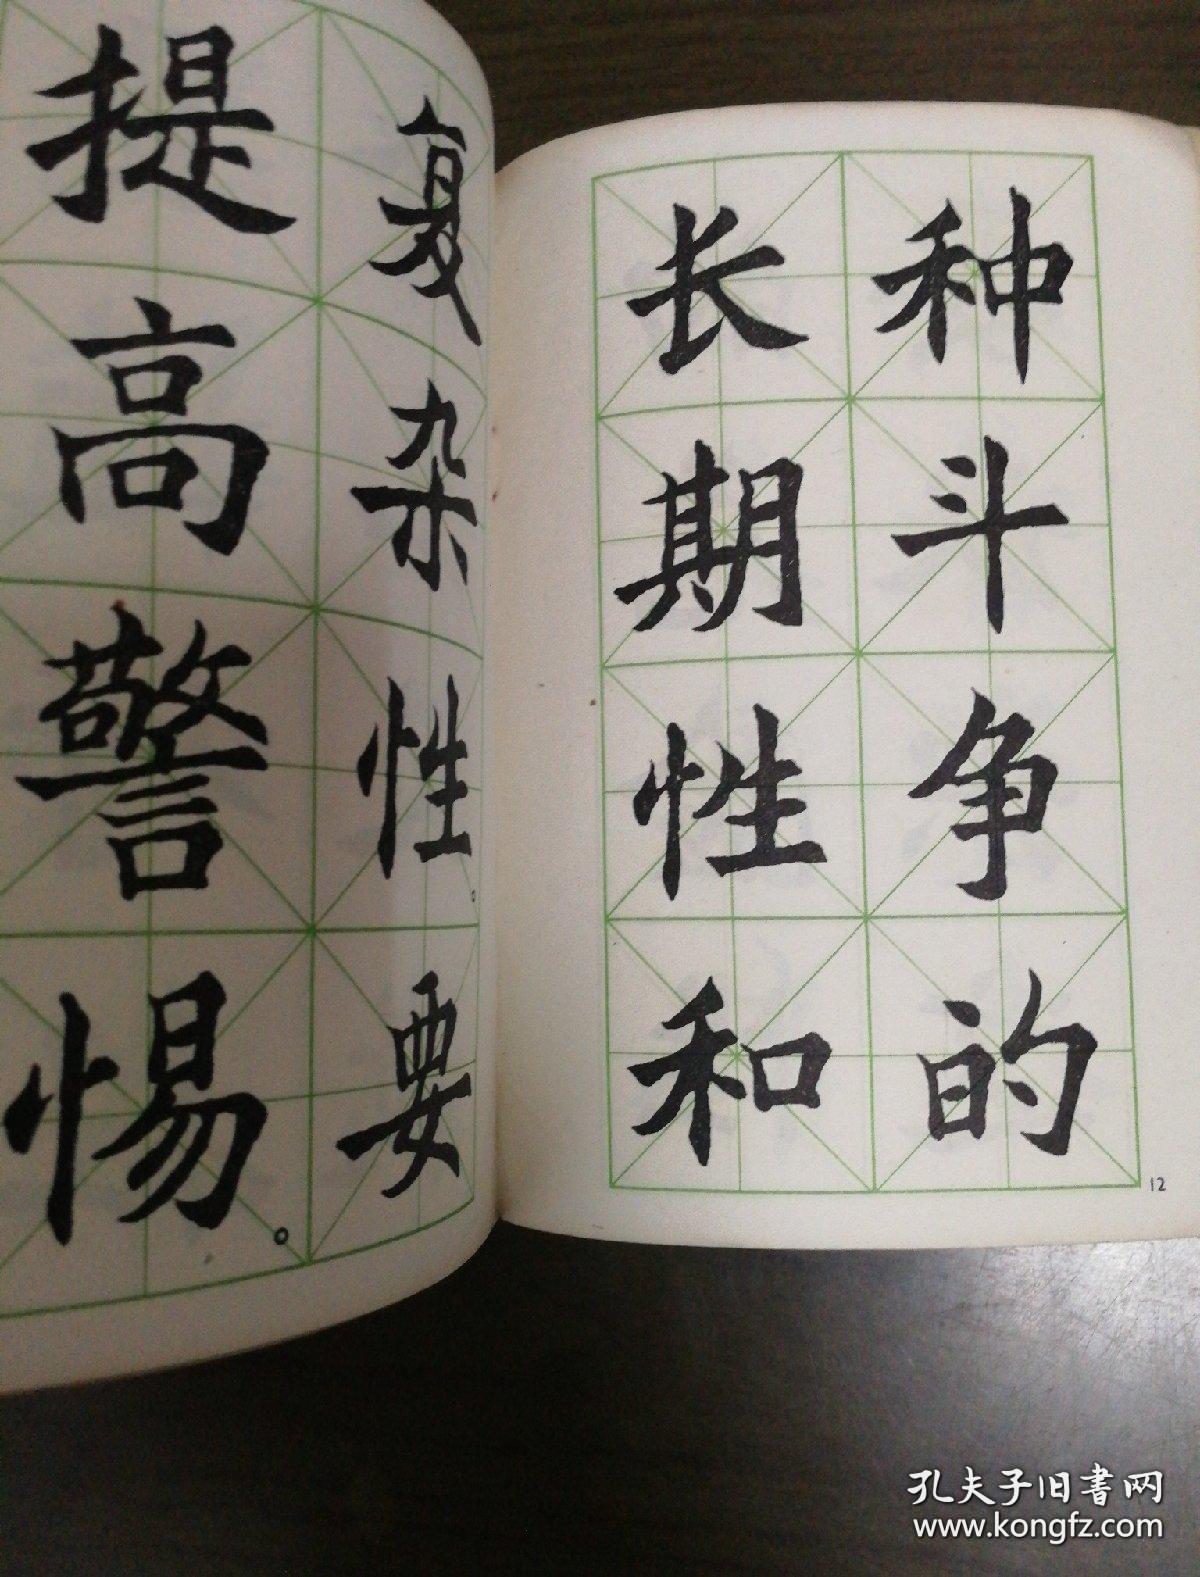 种斗争的
长期性和
复杂性。要
提高警惕。
12
孔夫子旧书网
www.kongfz.com